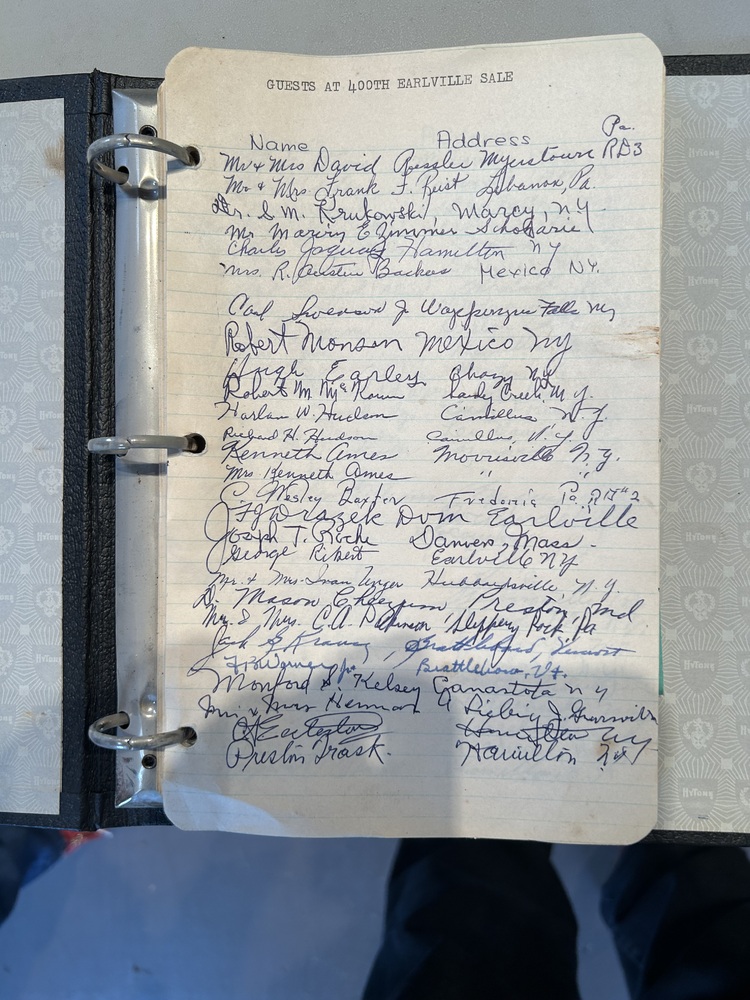 GUESTS AT 400TH EARLVILLE SALE
Name Address Pa.
Mr & Mrs David Ressler Myerstown RD3
Mr & Mrs. Frank F. Reist Lebanon, Pa.
Dr. S. M. Krukowski, Marcy, N.Y.
Mr Marvin E Zimmer Schoharie
Charles Hamilton NY
Mrs. R. Austin Backus Mexico NY.
Carl Swenson Jr Wappingers Falls NY
Robert Monson Mexico NY
Hugh Earley Chazy NY
Robert M. Creek N.Y.
Harlan W. Hudson Camillus, N.Y.
Richard H. Hudson Camillus, N.Y.
Kenneth Ames Morrisville N.Y.
Mrs Kenneth Ames " "
C. Wesley Baxter Frederic Pa. RD#2
Drazek DVM Earlville
Joseph T. Roche Danvers, Mass.
George Rikert Earlville NY
Mr. & Mrs. Ivan Unger Hubbardsville, N.Y.
D. Mason Cheezum Preston, Md
Mr. & Mrs. C.A. Slippery Rock Pa
Jack G Krause, Brattleboro, Vermont
Jr. Brattleboro, Vt.
Monford S. Kelsey Canastota NY
Mr. & Mrs Herman
Preston Trask. Hamilton NY